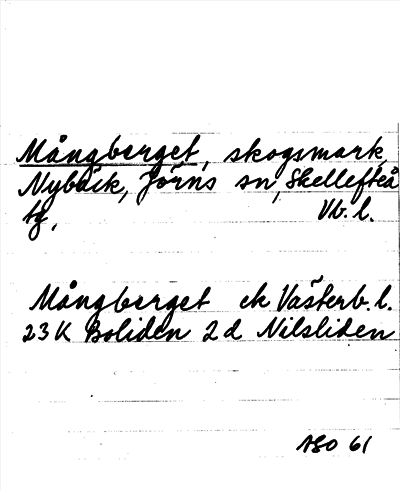 Mångberget, skogsmark,
Nybäck, Jörns sn, Skellefteå
tg, Vb. l.
Mångberget ek Västerb. l.
23 K Boliden 2 d Nilsliden
ASO 61